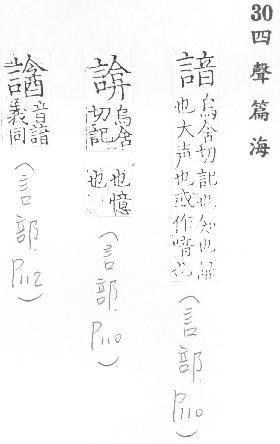 30四聲篇海
諳烏含切記也知也諷也大声也或作喑
（言部.P110）
𧫧烏含切記也憶也
（言部.P110）
音諳義同
（言部.P112）